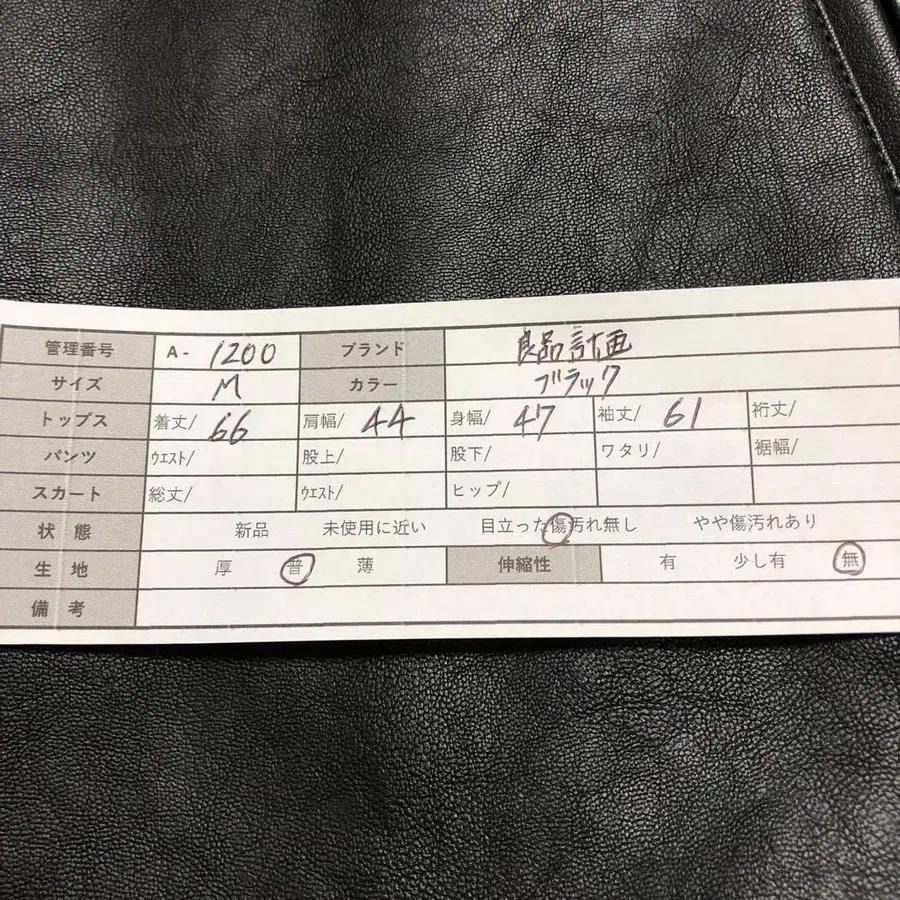 管理番号 A- 1200 ブランド 良品計画
サイズ M カラー ブラック
トップス 着丈/ 66 肩幅/ 44 身幅/ 47 袖丈/ 61 裄丈/
パンツ ウエスト/ 股上/ 股下/ ワタリ/ 裾幅/
スカート 総丈/ ウエスト/ ヒップ/
状態 新品 未使用に近い 目立った傷汚れ無し やや傷汚れあり
生地 厚 普 薄 伸縮性 有 少し有 無
備考